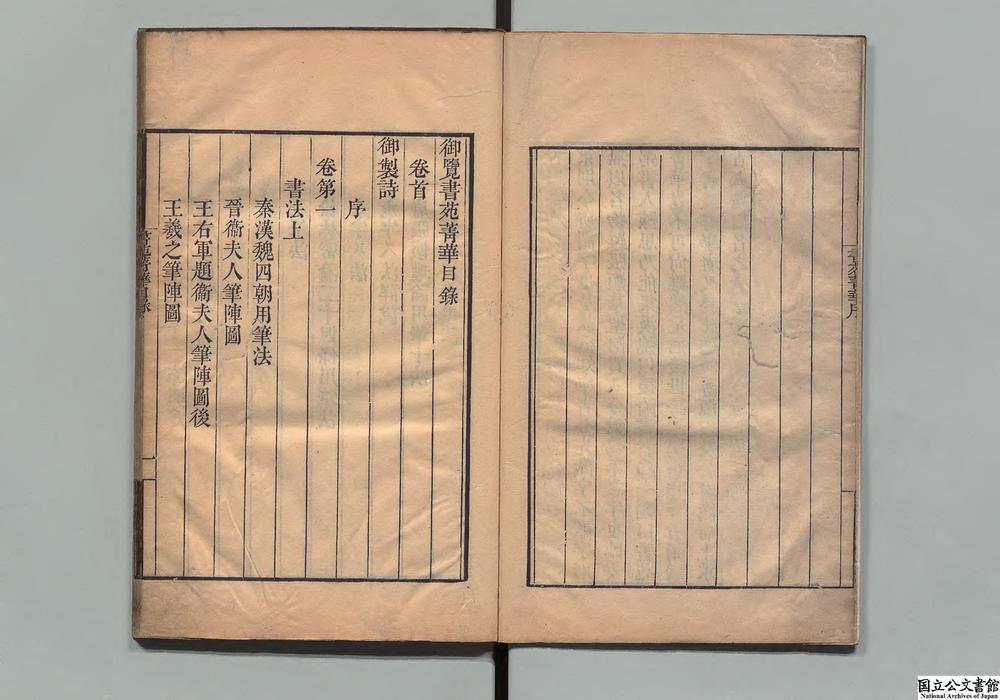 御覽書苑菁華目錄
卷首
御製詩
序
卷第一
書法上
秦漢魏四朝用筆法
晉衞夫人筆陣圖
王右軍題衞夫人筆陣圖後
王羲之筆陣圖
国立公文書館
National Archives of Japan